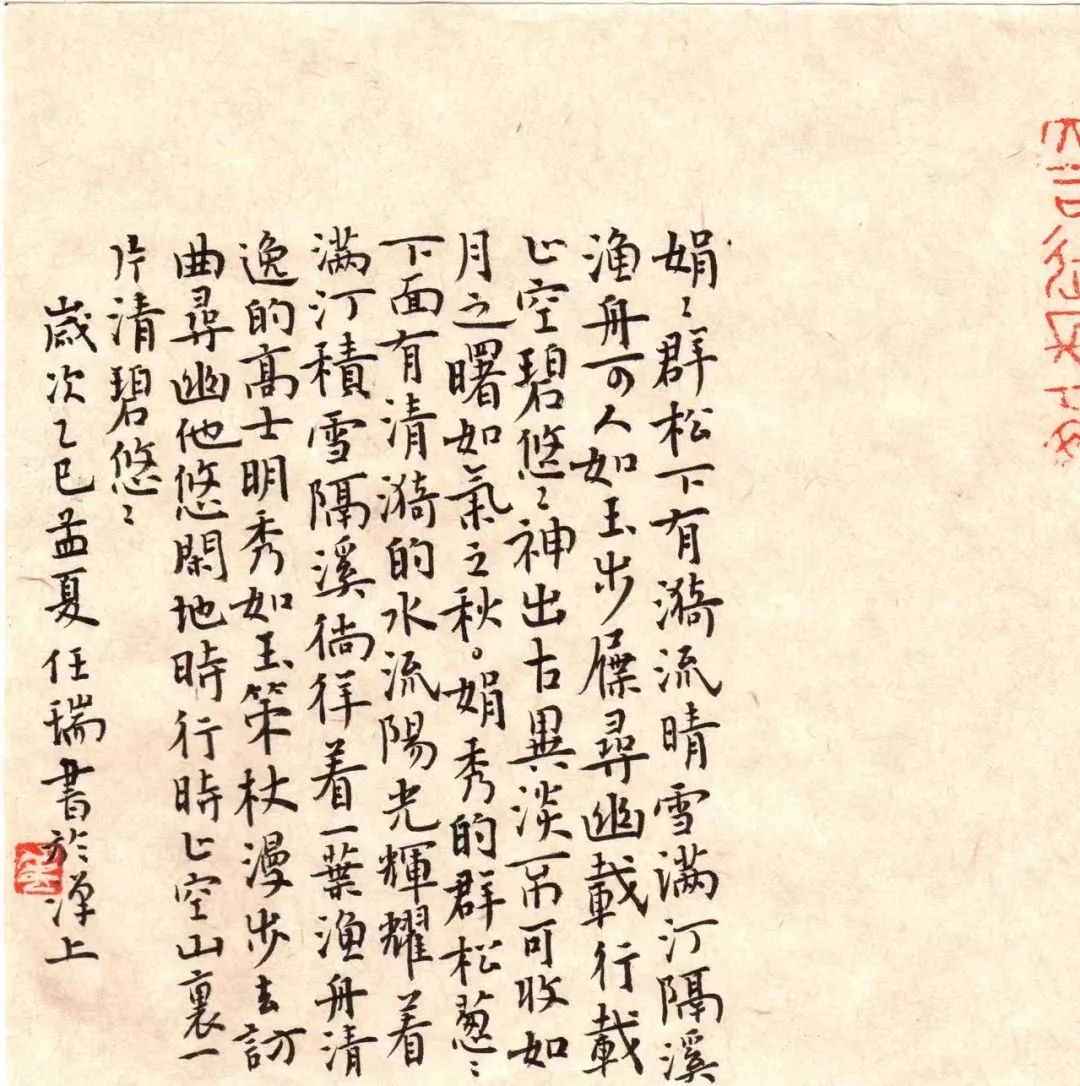 娟〻群松下有漪流晴雪满汀隔溪
渔舟可人如玉步屧尋幽載行載
止空碧悠〻神出古異淡不可收如
月之曙如氣之秋。娟秀的群松葱〻
下面有清漪的水流陽光輝耀着
满汀積雪隔溪徜徉着一葉渔舟清
逸的高士明秀如玉策杖漫步去訪
曲尋幽他悠閑地時行時止空山裏一
片清碧悠〻
歲次乙巳孟夏任瑞書於上